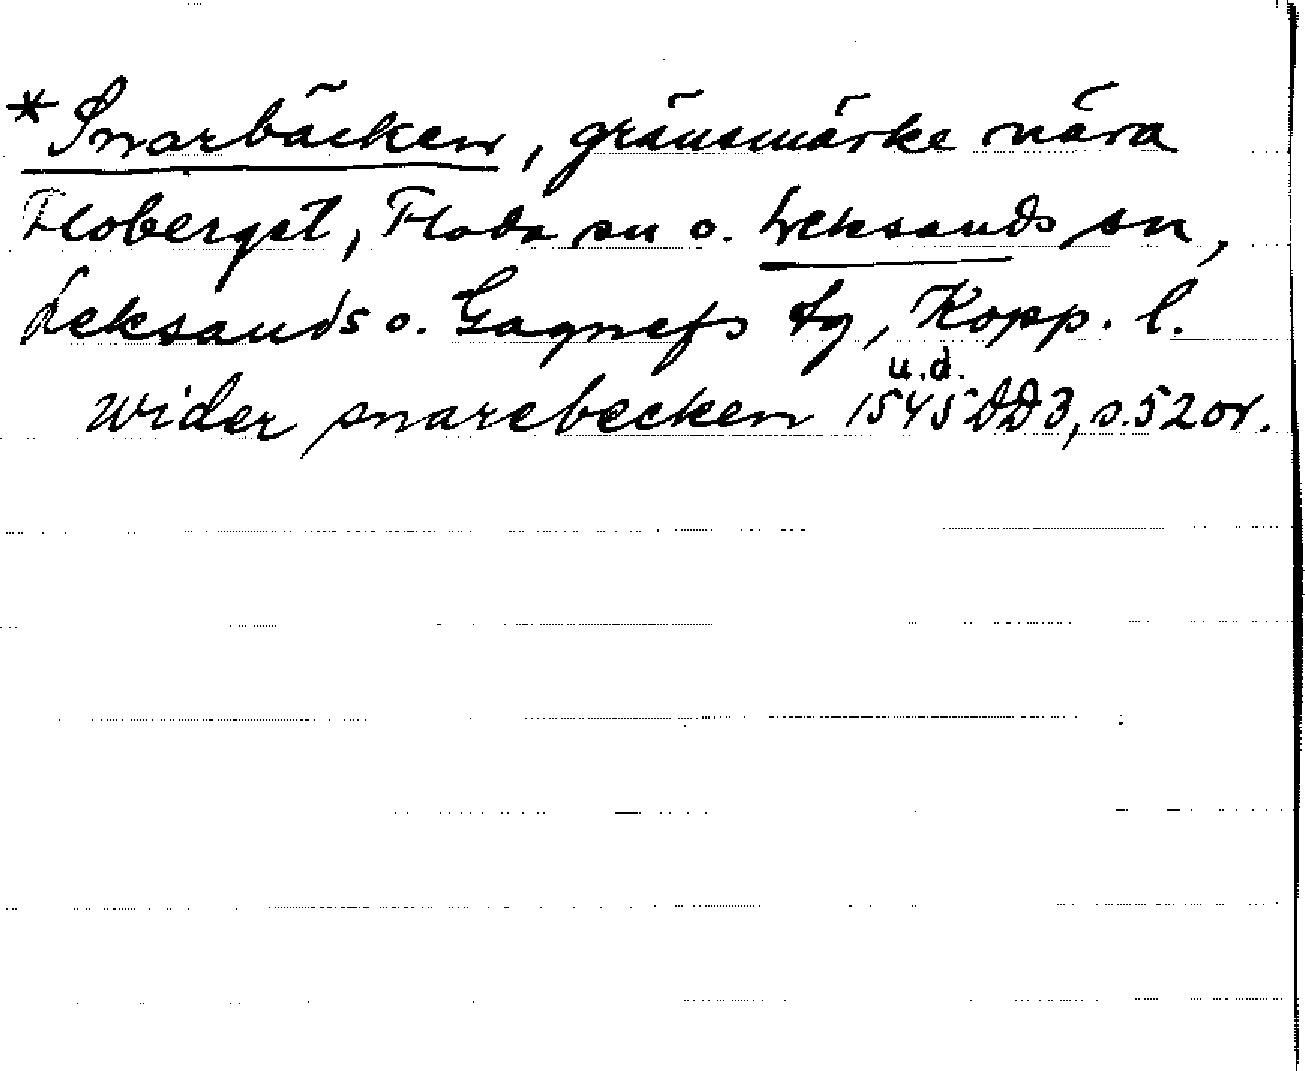 *Snarbäcken, gränsmärke nära
Floberget, Floda sn o. Leksands sn,
Leksands o. Gagnefs tg, Kopp. l.
u.d.
wider snarebecken 1545 DD3, s. 52 or.